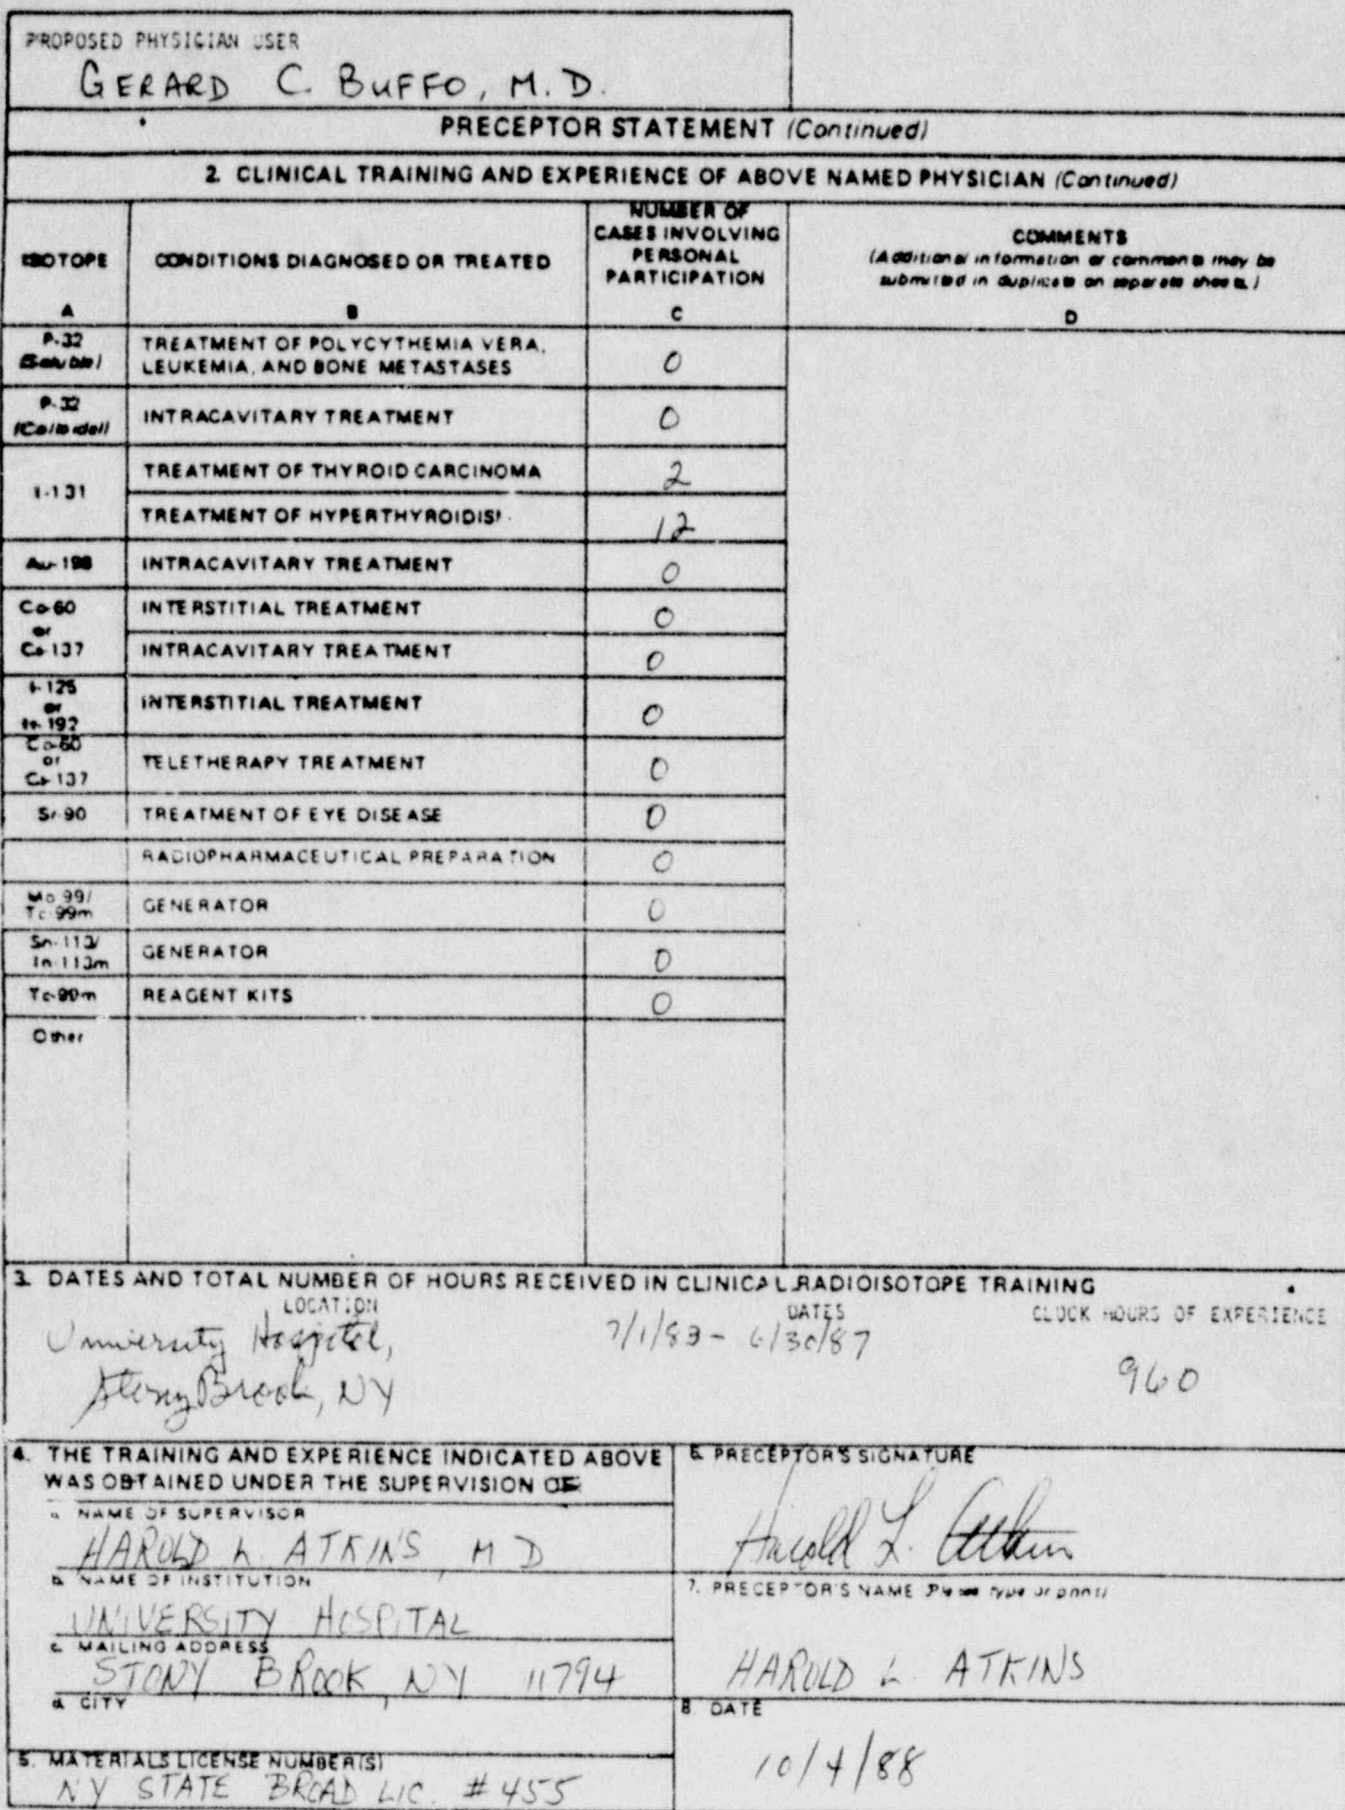 PROPOSED PHYSICIAN USER
GERARD C. BUFFO, M.D.
PRECEPTOR STATEMENT (Continued)
2. CLINICAL TRAINING AND EXPERIENCE OF ABOVE NAMED PHYSICIAN (Continued)
ISOTOPE
A
CONDITIONS DIAGNOSED OR TREATED
B
NUMBER OF
CASES INVOLVING
PERSONAL
PARTICIPATION
C
COMMENTS
(Additional information or comments may be
submitted in duplicate on separate sheets.)
D
P-32
(Soluble)
TREATMENT OF POLYCYTHEMIA VERA,
LEUKEMIA, AND BONE METASTASES
0
P-32
(Colloidal)
INTRACAVITARY TREATMENT
0
I-131
TREATMENT OF THYROID CARCINOMA
2
TREATMENT OF HYPERTHYROIDIS
12
Au-198
INTRACAVITARY TREATMENT
0
Co-60
or
Cs-137
INTERSTITIAL TREATMENT
0
INTRACAVITARY TREATMENT
0
I-125
or
Ir-192
INTERSTITIAL TREATMENT
0
Co-60
or
Cs-137
TELETHERAPY TREATMENT
0
Sr-90
TREATMENT OF EYE DISEASE
0
RADIOPHARMACEUTICAL PREPARATION
0
Mo-99/
Tc-99m
GENERATOR
0
Sn-113/
In-113m
GENERATOR
0
Tc-99m
REAGENT KITS
0
Other
3. DATES AND TOTAL NUMBER OF HOURS RECEIVED IN CLINICAL RADIOISOTOPE TRAINING
LOCATION
DATES
CLOCK HOURS OF EXPERIENCE
University Hospital,
Stony Brook, NY
7/1/83 - 6/30/87
960
4. THE TRAINING AND EXPERIENCE INDICATED ABOVE
WAS OBTAINED UNDER THE SUPERVISION OF:
a. NAME OF SUPERVISOR
HAROLD L. ATKINS MD
b. NAME OF INSTITUTION
UNIVERSITY HOSPITAL
c. MAILING ADDRESS
STONY BROOK, NY 11794
d. CITY
5. MATERIALS LICENSE NUMBER(S)
NY STATE BROAD LIC. #455
6. PRECEPTOR'S SIGNATURE
Harold L. Atkins
7. PRECEPTOR'S NAME (Please type or print)
HAROLD L. ATKINS
8. DATE
10/4/88